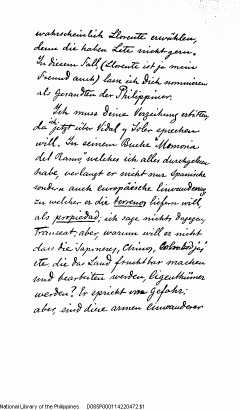 wahrscheinlich Llorente erwählen,
denn die haben Lete nicht gern.
In diesem Fall (Llorente ist ja mein
Freund auch) lass ich Dich nominieren
als Gesandten der Philippiner.
Ich muss deine Verzeihung erbitten
da ich jetzt über Vidal y Soler sprechen
will. In seinem Buche "Memoria
del Ramo," welches ich alles durchgeben
habe, verlangt er nicht nur Spanische
sondern auch europäische Einwanderung
zu welcher er die terrenos liefern will
als propiedad; ich sage nichts dagegen,
Transeat, aber, warum will er nicht
dass die Japoneses, Chinos,
etc, die das Land fruchtbar machen
und bearbeiten werden, Eigenthümer
werden? Er spricht von Gefahr;
aber, sind diese armen Einwanderer
National Library of the Philippines D085R00011422047251